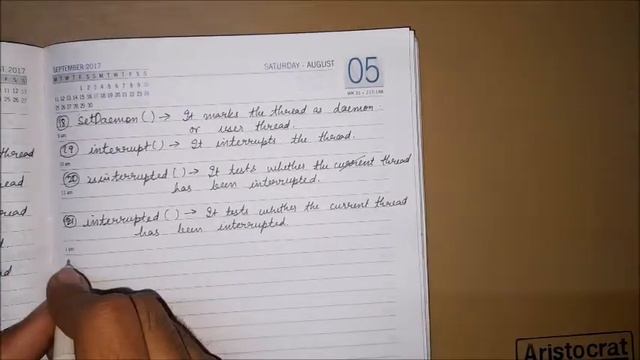 SEPTEMBER 2017
SATURDAY - AUGUST
05
M T W T F S S M T W T F S S
(18) setDaemon ( ) → It marks the thread as daemon
or user thread.
(19) interrupt ( ) → It interrupts the thread.
(20) isinterrupted ( ) → It tests whether the current thread
has been interrupted.
(21) interrupted ( ) → It tests whether the current thread
has been interrupted.
2017
thread
Aristocrat